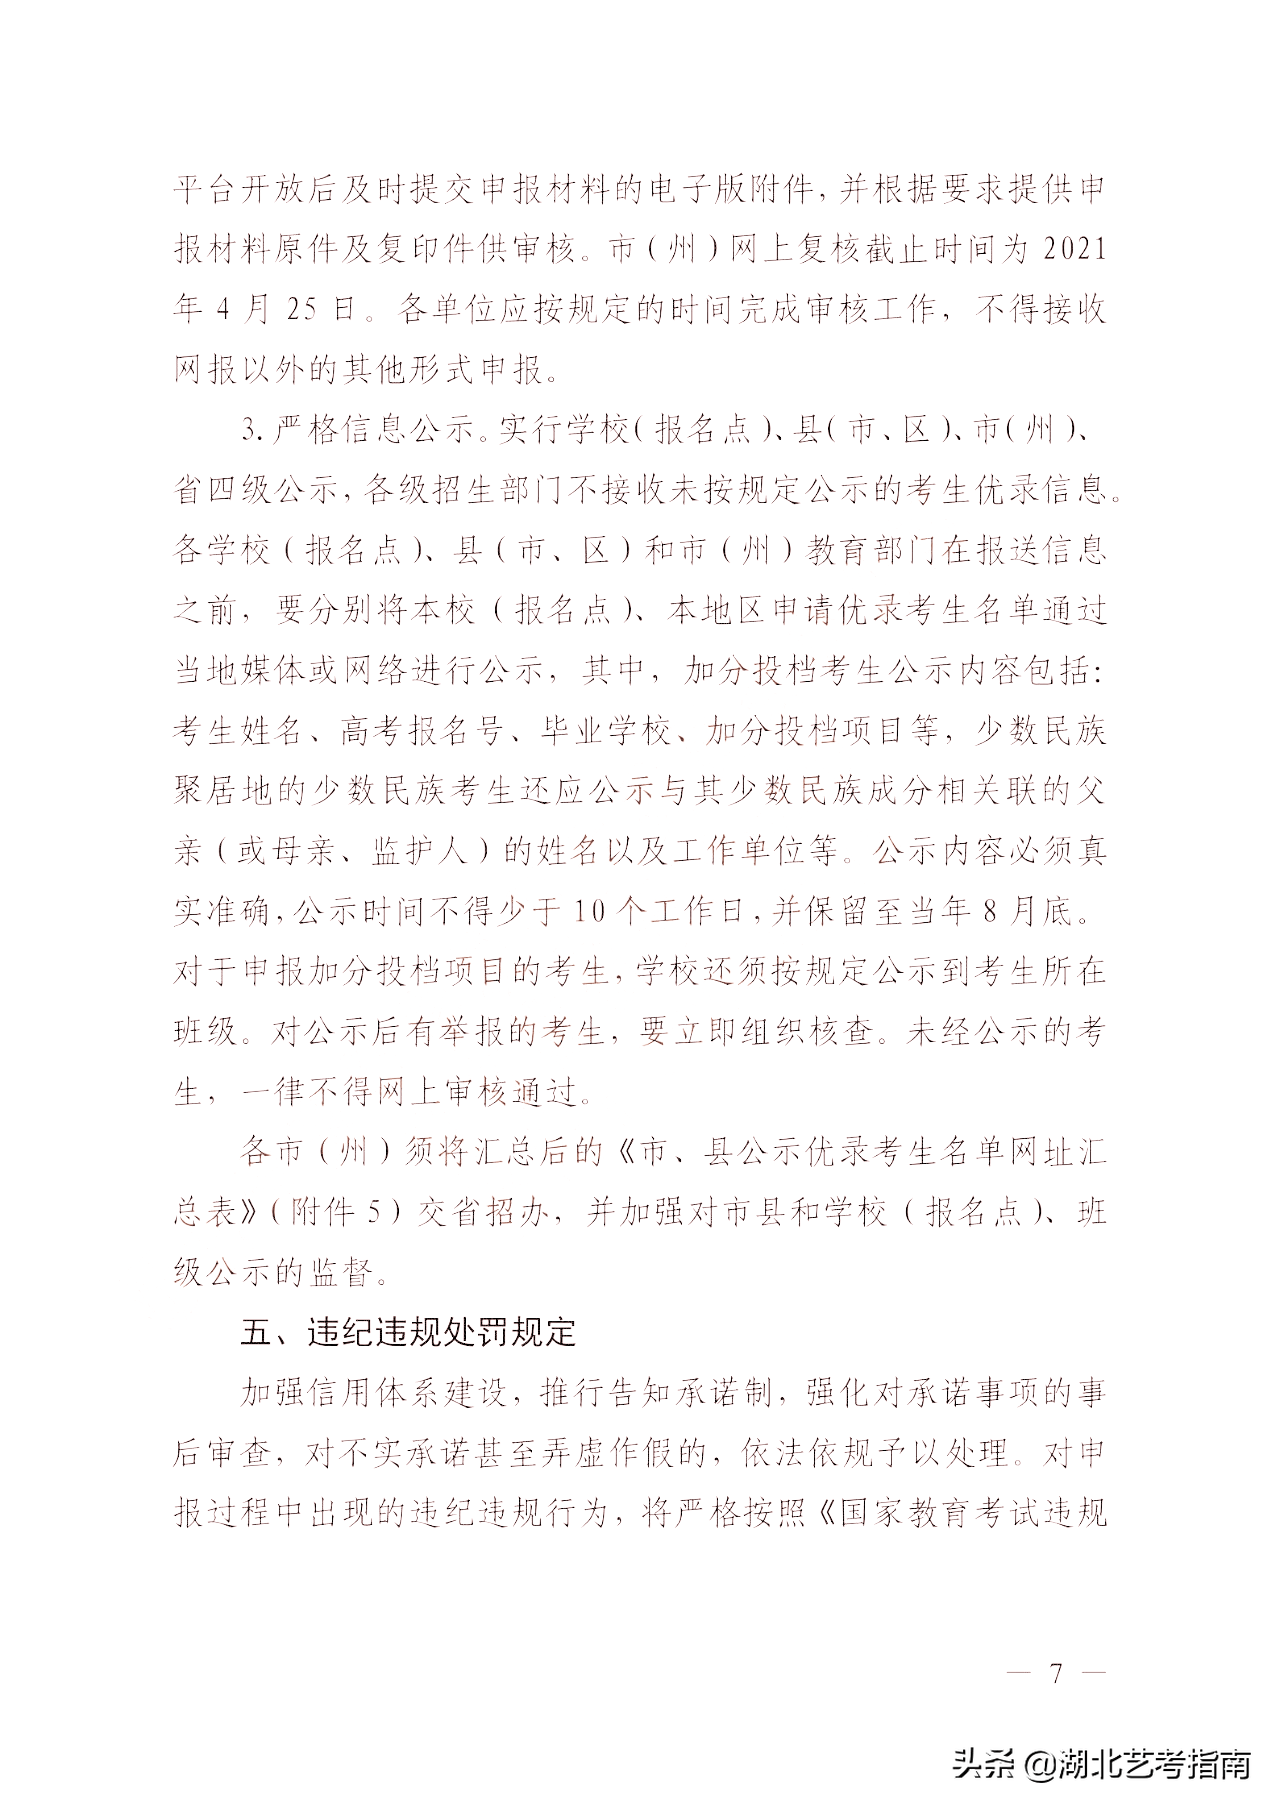 平台开放后及时提交申报材料的电子版附件，并根据要求提供申
报材料原件及复印件供审核。市（州）网上复核截止时间为 2021
年 4 月 25 日。各单位应按规定的时间完成审核工作，不得接收
网报以外的其他形式申报。
3. 严格信息公示。实行学校（报名点）、县（市、区）、市（州）、
省四级公示，各级招生部门不接收未按规定公示的考生优录信息。
各学校（报名点）、县（市、区）和市（州）教育部门在报送信息
之前，要分别将本校（报名点）、本地区申请优录考生名单通过
当地媒体或网络进行公示，其中，加分投档考生公示内容包括：
考生姓名、高考报名号、毕业学校、加分投档项目等，少数民族
聚居地的少数民族考生还应公示与其少数民族成分相关联的父
亲（或母亲、监护人）的姓名以及工作单位等。公示内容必须真
实准确，公示时间不得少于 10 个工作日，并保留至当年 8 月底。
对于申报加分投档项目的考生，学校还须按规定公示到考生所在
班级。对公示后有举报的考生，要立即组织核查。未经公示的考
生，一律不得网上审核通过。
各市（州）须将汇总后的《市、县公示优录考生名单网址汇
总表》（附件 5）交省招办，并加强对市县和学校（报名点）、班
级公示的监督。
五、违纪违规处罚规定
加强信用体系建设，推行告知承诺制，强化对承诺事项的事
后审查，对不实承诺甚至弄虚作假的，依法依规予以处理。对申
报过程中出现的违纪违规行为，将严格按照《国家教育考试违规
— 7 —
头条 @湖北艺考指南